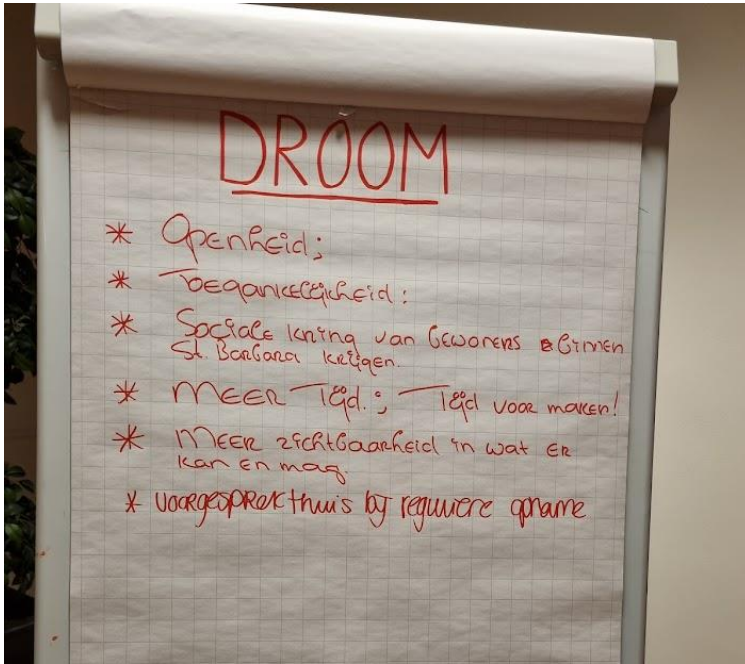 DROOM
* Openheid;
* Toegankelijkheid:
* Sociale kring van bewoners binnen
St. Barbara krijgen.
* MEER Tijd.; Tijd voor maken!
* MEER zichtbaarheid in wat ER
kan en mag.
* voorgesprek thuis bij reguliere opname